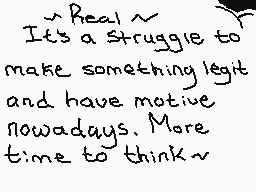 ~ Real ~
It's a struggle to
make something legit
and have motive
nowadays. More
time to think ~